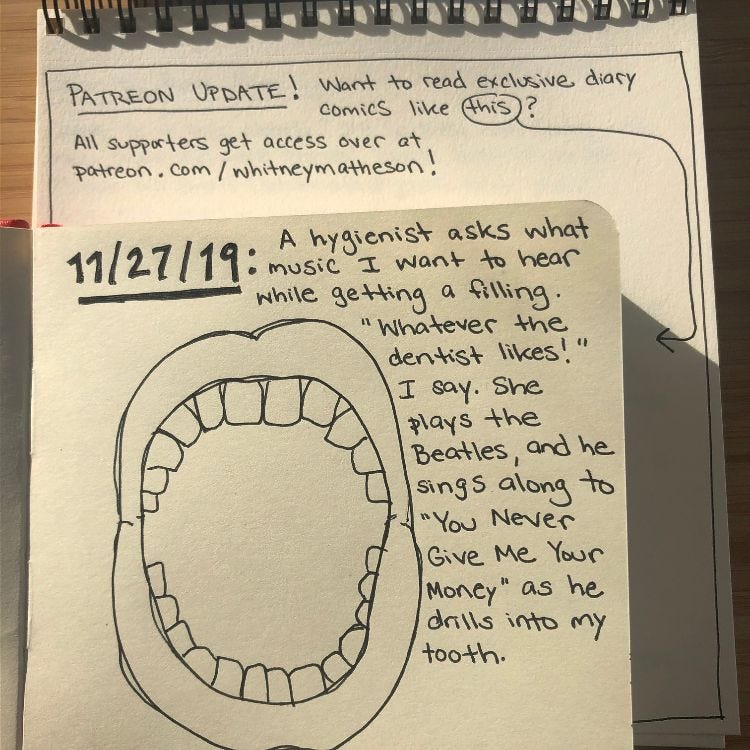 PATREON UPDATE! Want to read exclusive diary
comics like this?
All supporters get access over at
patreon.com/whitneymatheson!
11/27/19: A hygienist asks what
music I want to hear
while getting a filling.
"Whatever the
dentist likes!"
I say. She
plays the
Beatles, and he
sings along to
"You Never
Give Me Your
Money" as he
drills into my
tooth.